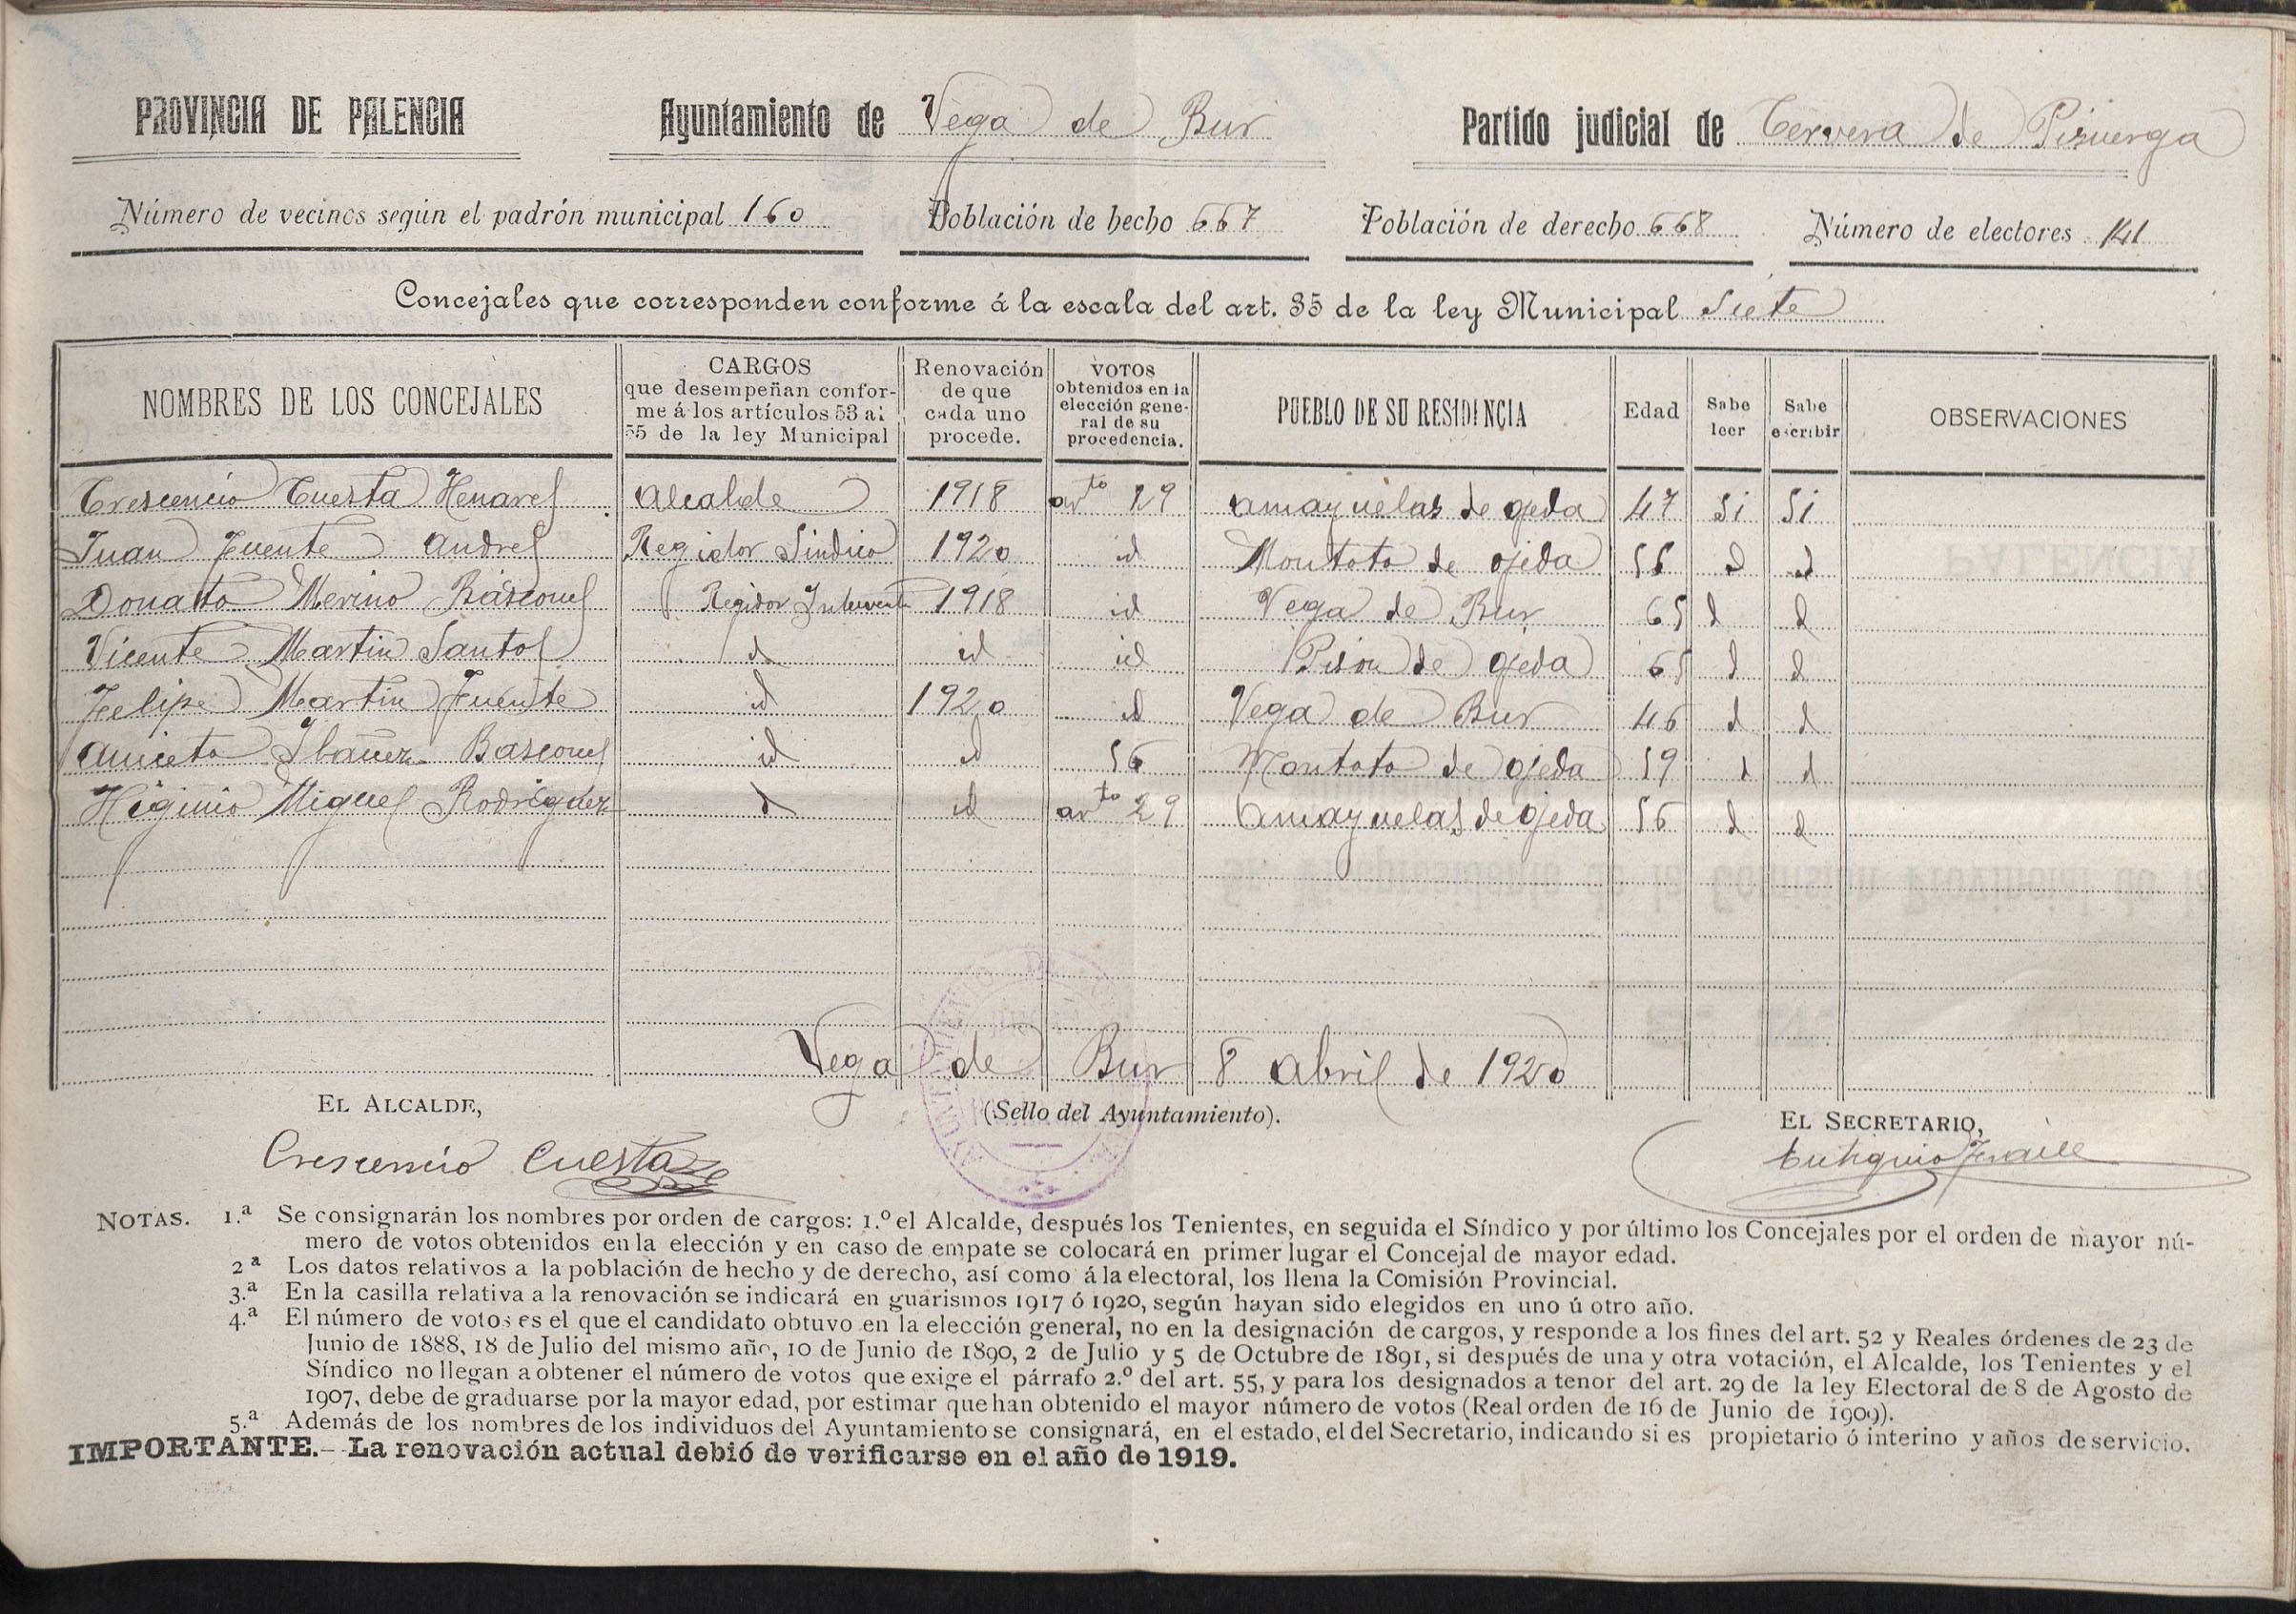 PROVINCIA DE PALENCIA Ayuntamiento de Vega de Bur Partido judicial de Cervera de Pisuerga
Número de vecinos según el padrón municipal 160 Población de hecho 667 Población de derecho 668 Número de electores 141
Concejales que corresponden conforme á la escala del art. 35 de la ley Municipal Siete
NOMBRES DE LOS CONCEJALES CARGOS que desempeñan conforme á los artículos 53 al 55 de la ley Municipal Renovación de que cada uno procede. VOTOS obtenidos en la elección general de su procedencia. PUEBLO DE SU RESIDENCIA Edad Sabe leer Sabe escribir OBSERVACIONES
Crescencio Cuesta Henares Alcalde 1918 arto 29 amayuelas de ojeda 47 Si Si
Juan Fuente Andres Regidor Sindico 1920 id Montoto de ojeda 56 d d
Donato Merino Básconez Regidor Intervent 1918 id Vega de Bur 65 d d
Vicente Martin Santos id id id Pison de ojeda 65 d d
Felipe Martin Fuente id 1920 id Vega de Bur 46 d d
Aniceto Ibañez Basconez id id 56 Montoto de ojeda 59 d d
Higinio Miguel Rodriguez d id arto 29 Amayuelas de ojeda 56 d d
Vega de Bur 8 abril de 1920
EL ALCALDE, (Sello del Ayuntamiento). EL SECRETARIO,
Crescencio Cuesta Eutiquio Fraile
NOTAS. 1.ª Se consignarán los nombres por orden de cargos: 1.º el Alcalde, después los Tenientes, en seguida el Síndico y por último los Concejales por el orden de mayor nú-
mero de votos obtenidos en la elección y en caso de empate se colocará en primer lugar el Concejal de mayor edad.
2ª Los datos relativos a la población de hecho y de derecho, así como á la electoral, los llena la Comisión Provincial.
3.ª En la casilla relativa a la renovación se indicará en guarismos 1917 ó 1920, según hayan sido elegidos en uno ú otro año.
4.ª El número de votos es el que el candidato obtuvo en la elección general, no en la designación de cargos, y responde a los fines del art. 52 y Reales órdenes de 23 de
Junio de 1888, 18 de Julio del mismo año, 10 de Junio de 1890, 2 de Julio y 5 de Octubre de 1891, si después de una y otra votación, el Alcalde, los Tenientes y el
Síndico no llegan a obtener el número de votos que exige el párrafo 2.º del art. 55, y para los designados a tenor del art. 29 de la ley Electoral de 8 de Agosto de
1907, debe de graduarse por la mayor edad, por estimar que han obtenido el mayor número de votos (Real orden de 16 de Junio de 1909).
5.ª Además de los nombres de los individuos del Ayuntamiento se consignará, en el estado, el del Secretario, indicando si es propietario ó interino y años de servicio.
IMPORTANTE.—La renovación actual debió de verificarse en el año de 1919.